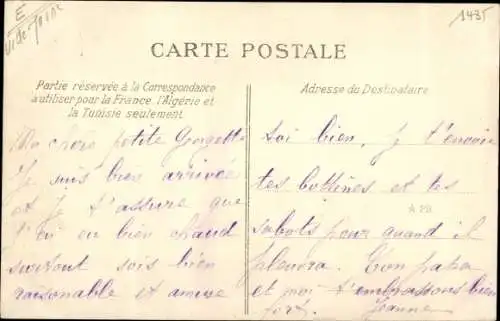 E
1435
CARTE POSTALE
Partie réservée à la Correspondance
à utiliser pour la France, l'Algérie et
la Tunisie seulement
Adresse du Destinataire
Ma chère petite Georgette
Je suis bien arrivée
et Je t'assure que
j'ai eu bien chaud
surtout sois bien
raisonable et amuse
toi bien, Je t'envoie
tes bottines et tes
A 29
sabots pour quand il
pleuvra. Ton papa
et moi t'embrassons bien
fort. Jeanne